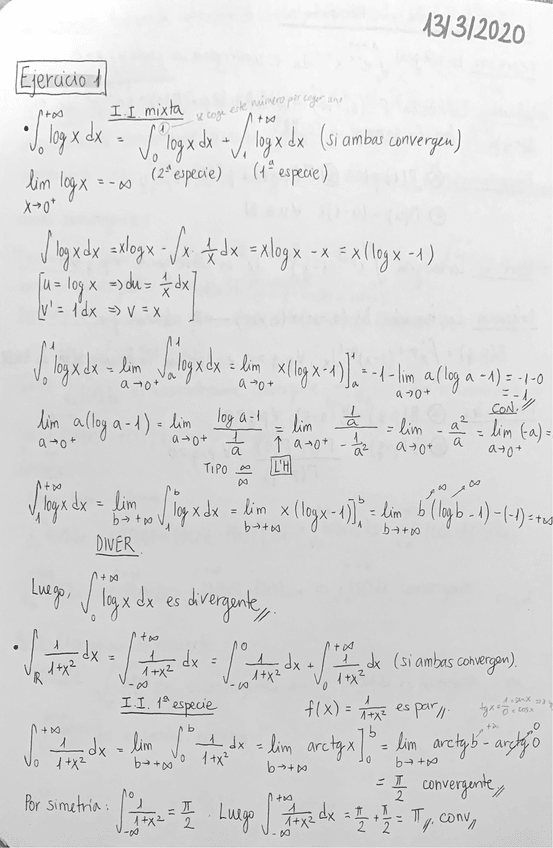 13/3/2020
Ejercicio 1
I.I mixta se coge este número por coger uno
• ∫₀^{+∞} log x dx = ∫₀^{1} log x dx + ∫₁^{+∞} log x dx (si ambas convergen)
lim_{x→0⁺} log x = -∞ (2ª especie) (1ª especie)
∫ log x dx = x log x - ∫ x · 1/x dx = x log x - x = x (log x - 1)
[u = log x ⇒ du = 1/x dx
v' = 1 dx ⇒ v = x]
∫₀^{1} log x dx = lim_{a→0⁺} ∫ₐ^{1} log x dx = lim_{a→0⁺} x (log x - 1)]ₐ^{1} = -1 - lim_{a→0⁺} a (log a - 1) = -1 - 0
= -1 CON.//
lim_{a→0⁺} a (log a - 1) = lim_{a→0⁺} (log a - 1)/(1/a) = lim_{a→0⁺} (1/a)/(-1/a²) = lim_{a→0⁺} - a²/a = lim_{a→0⁺} (-a) =
TIPO ∞/∞ ↑ L'H
∫₁^{+∞} log x dx = lim_{b→+∞} ∫₁^{b} log x dx = lim_{b→+∞} x (log x - 1)]₁^{b} = lim_{b→+∞} b (log b - 1) - (-1) = +∞
DIVER.
Luego, ∫₀^{+∞} log x dx es divergente //
• ∫_ℝ 1/(1+x²) dx = ∫_{-∞}^{+∞} 1/(1+x²) dx = ∫_{-∞}^{0} 1/(1+x²) dx + ∫₀^{+∞} 1/(1+x²) dx (si ambas convergen).
I.I. 1ª especie f(x) = 1/(1+x²) es par //
∫₀^{+∞} 1/(1+x²) dx = lim_{b→+∞} ∫₀^{b} 1/(1+x²) dx = lim_{b→+∞} arctg x]₀^{b} = lim_{b→+∞} arctg b - arctg 0
= π/2 convergente //
Por simetría: ∫_{-∞}^{0} 1/(1+x²) = π/2 . Luego ∫_{-∞}^{+∞} 1/(1+x²) dx = π/2 + π/2 = π // conv //